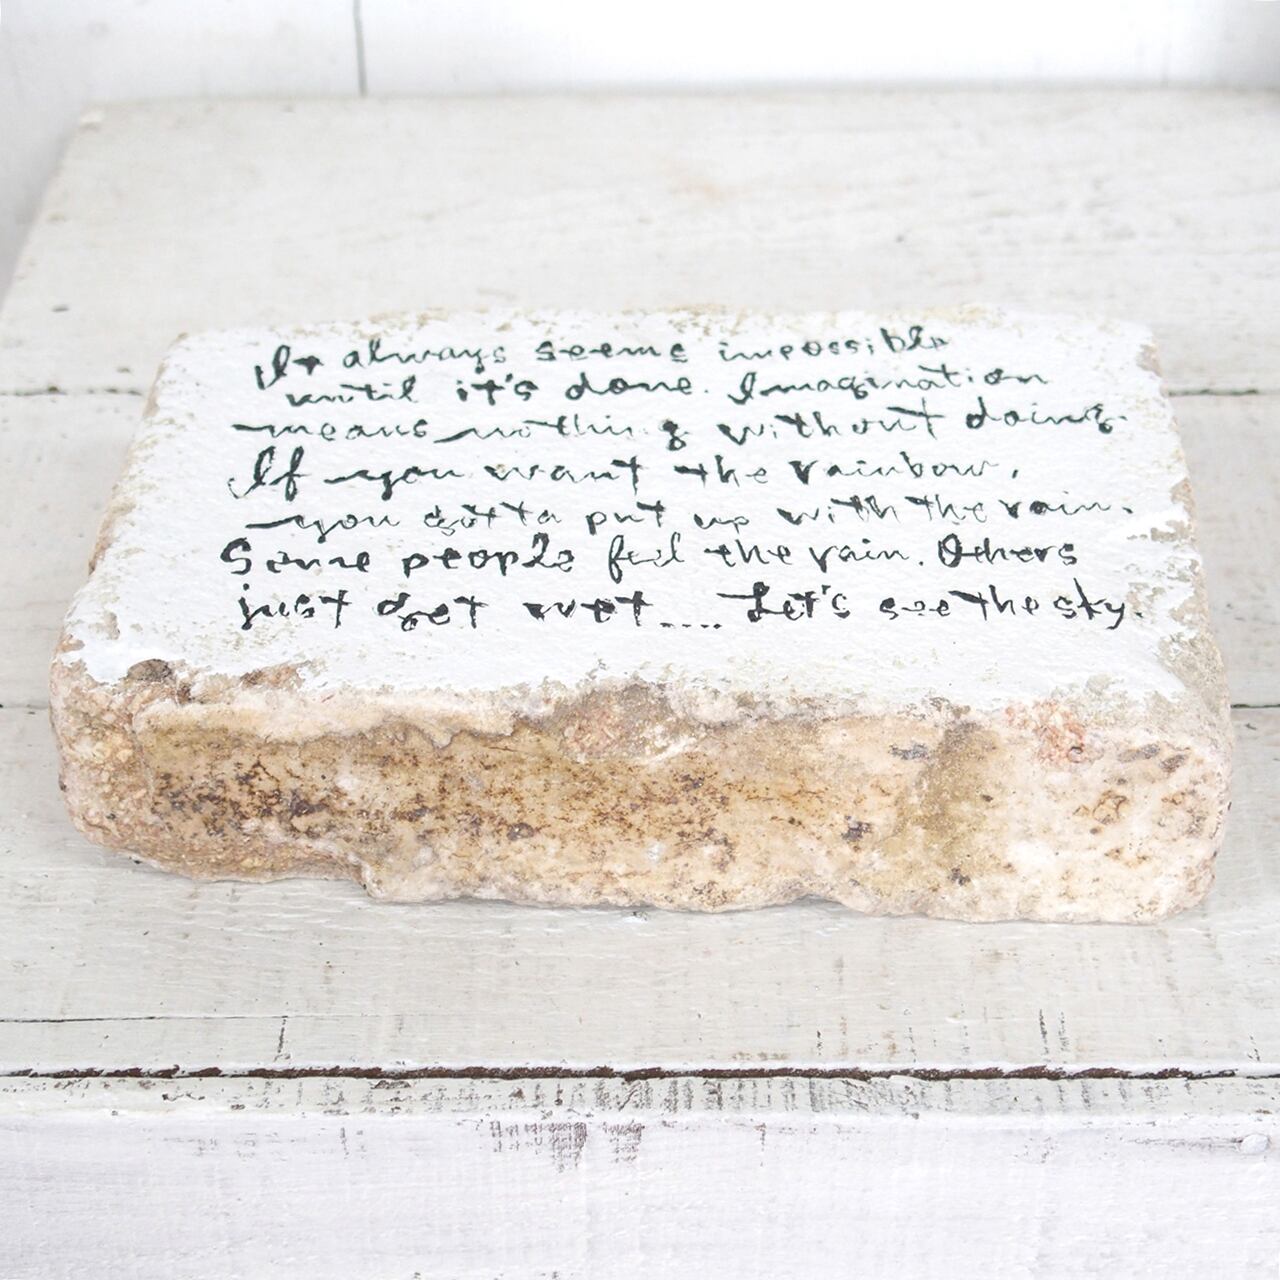 It always seems impossible
until it's done. Imagination
means nothing without doing.
If you want the rainbow,
you gotta put up with the rain.
Some people feel the rain. Others
just get wet.... Let's see the sky.